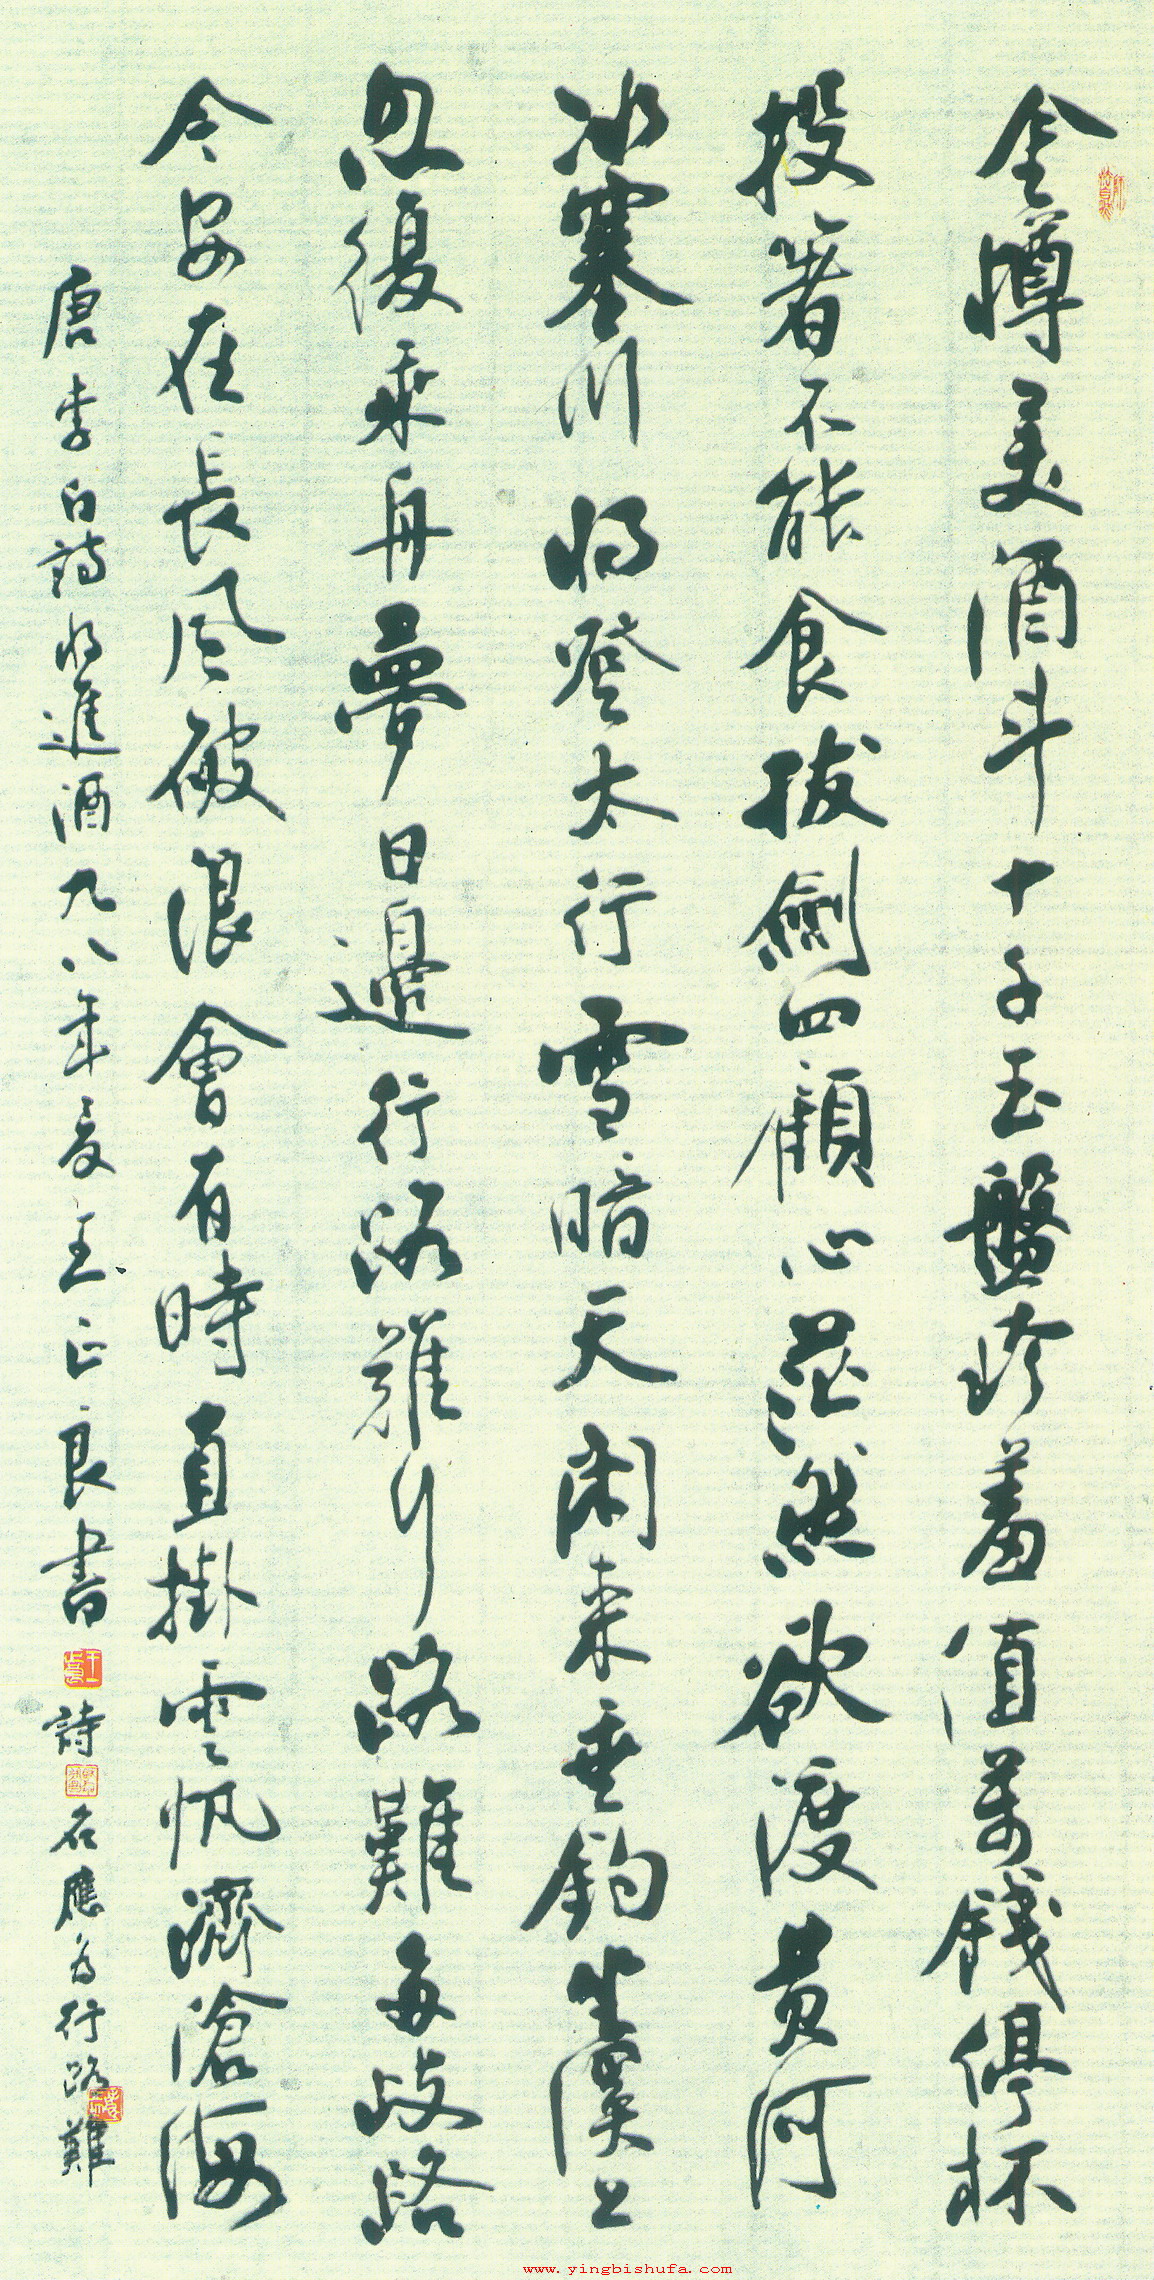 金樽美酒斗十千玉盤珍羞值萬錢停杯
投箸不能食拔劍四顧心茫然欲渡黃河
冰塞川將登太行雪暗天閑来垂釣坐溪上
忽復乘舟夢日邊行路難行路難多歧路
今安在長風破浪會有時直掛雲帆濟滄海
唐李白詩將進酒九八年夏王正良書 詩名應為行路難
www.yingbishufa.com